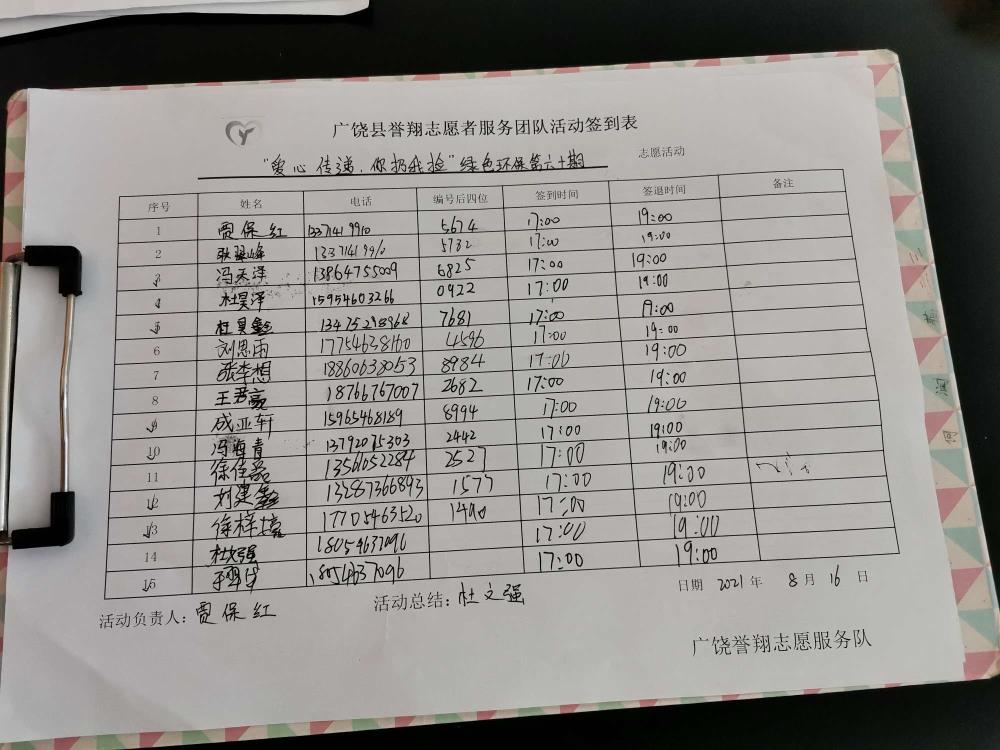 广饶县誉翔志愿者服务团队活动签到表
"爱心传递,你扔我捡"绿色环保第六十期 志愿活动
序号 姓名 电话 编号后四位 签到时间 签退时间 备注
1 贾保红 13371419910 5674 17:00 19:00
2 张翠峰 13371419910 5732 17:00 19:00
3 冯天泽 13864755009 6825 17:00 19:00
4 杜昊泽 15954603266 0922 17:00 19:00
5 杜昊鑫 13475298968 7681 17:00 19:00
6 刘思雨 17754638160 4596 17:00 19:00
7 张李想 18860638053 8984 17:00 19:00
8 王君豪 18766767007 2682 17:00 19:00
9 成亚轩 15965468189 8994 17:00 19:00
10 冯海青 13792075303 2442 17:00 19:00
11 徐佳磊 13561052284 2527 17:00 19:00
12 刘建鑫 13287366893 1577 17:00 19:00
13 徐梓 17705463520 1490 17:00 19:00
14 杜文强 18054637096 17:00 19:00
15 18054637096 17:00 19:00
活动负责人:贾保红 活动总结:杜文强 日期 2021年 8月16日
广饶誉翔志愿服务队